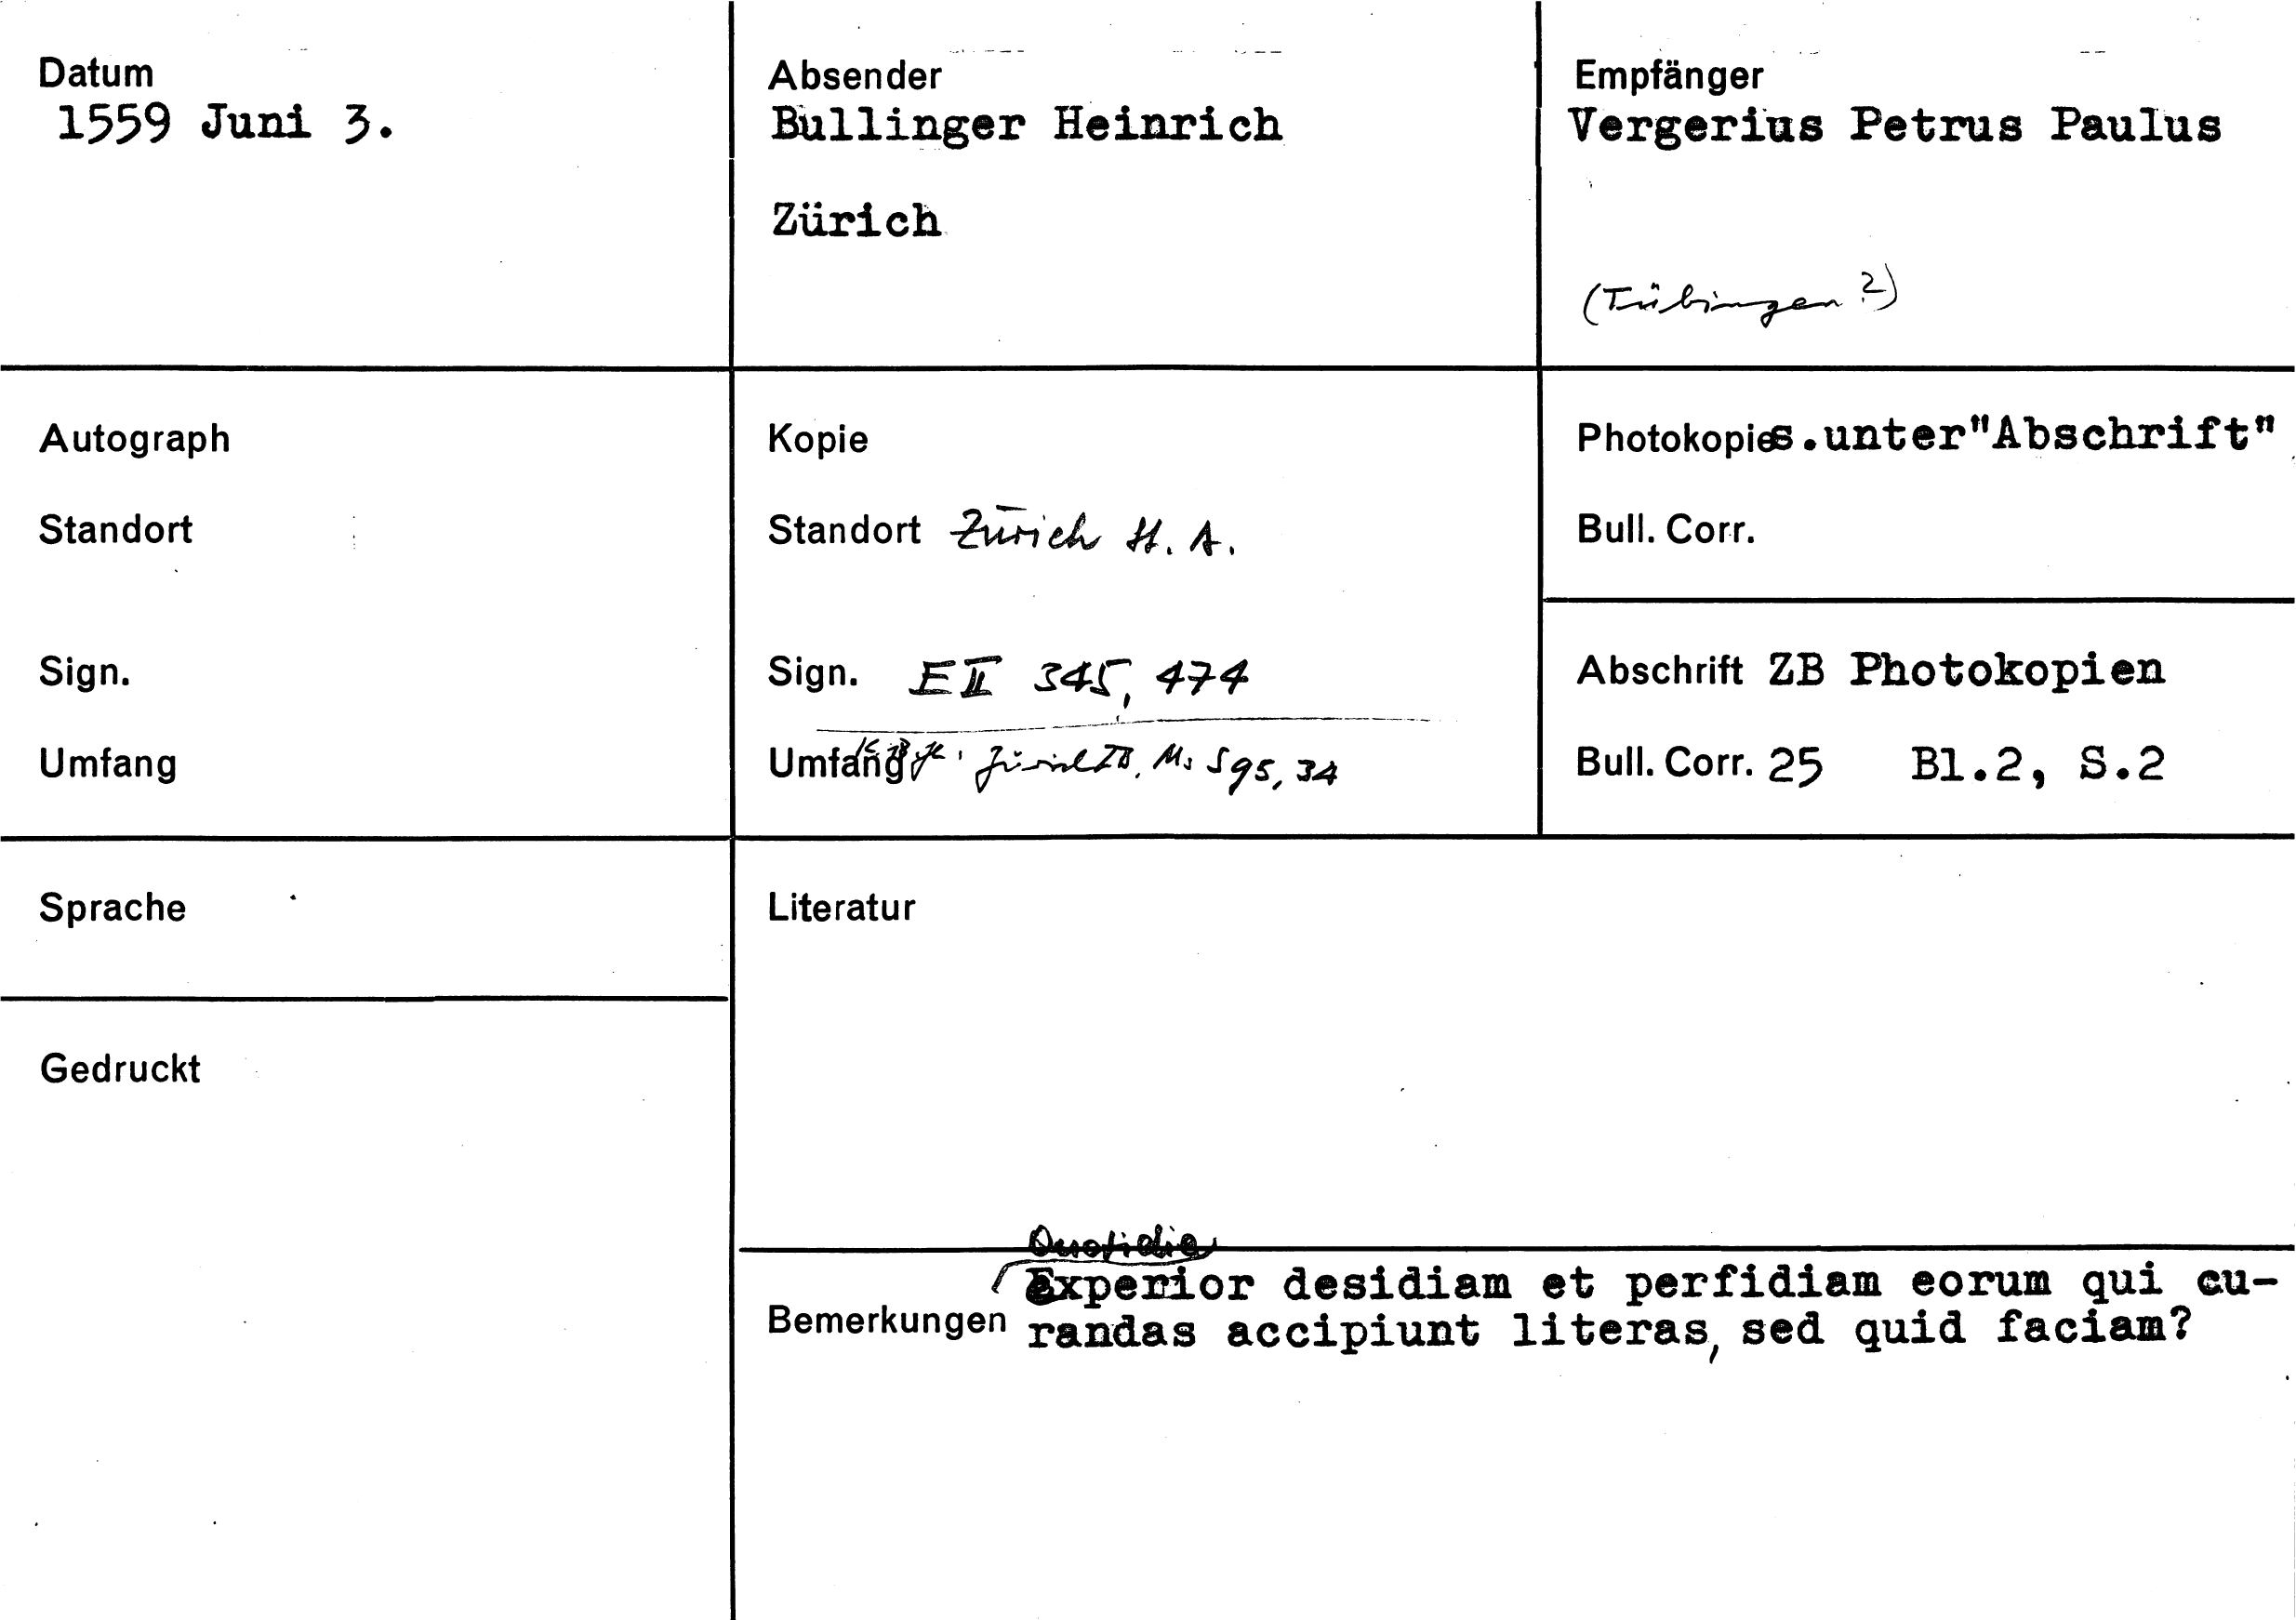 Datum
1559 Juni 3.
Absender
Bullinger Heinrich
Zürich
Empfänger
Vergerius Petrus Paulus
(Tübingen?)
Autograph
Standort
Sign.
Umfang
Kopie
Standort Zürich St. A.
Sign. E II 345, 474
Umfang Zürich ZB, Ms S 95, 34
Photokopie s.unter"Abschrift"
Bull. Corr.
Abschrift ZB Photokopien
Bull. Corr. 25 Bl.2, S.2
Sprache
Gedruckt
Literatur
Quotidie
Bemerkungen experior desidiam et perfidiam eorum qui cu-
randas accipiunt literas, sed quid faciam?